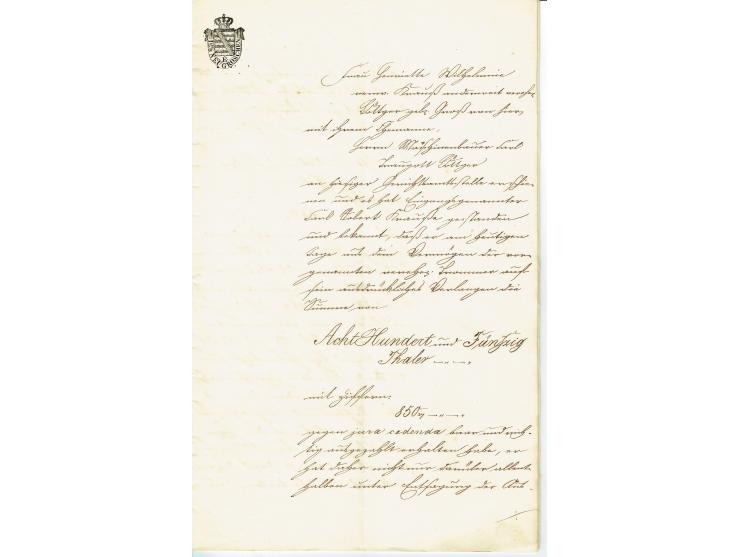 NEUGROSCHEN
Frau Henriette Wilhelmine
verw. Krauß anderweit vereh.
Böttger geb. Groß von hier,
mit ihrem Ehemanne,
Herrn Maschinenbauer Carl
Traugott Böttger
an hiesiger Gerichtsamtsstelle erschie-
nen und es hat Eingangsgenannter
Carl Robert Krauße gestanden
und bekannt, daß er am heutigen
Tage aus dem Vermögen der vor-
genannten verehel. Trommer auf
sein ausdrückliches Verlangen die
Summe von
Acht Hundert und Fünfzig
Thaler
mit Ziffern:
850
gegen jura cedenda baar und rich-
tig ausgezahlt erhalten habe, er
hat daher nicht nur darüber allent-
halben unter Entsagung der Aus-